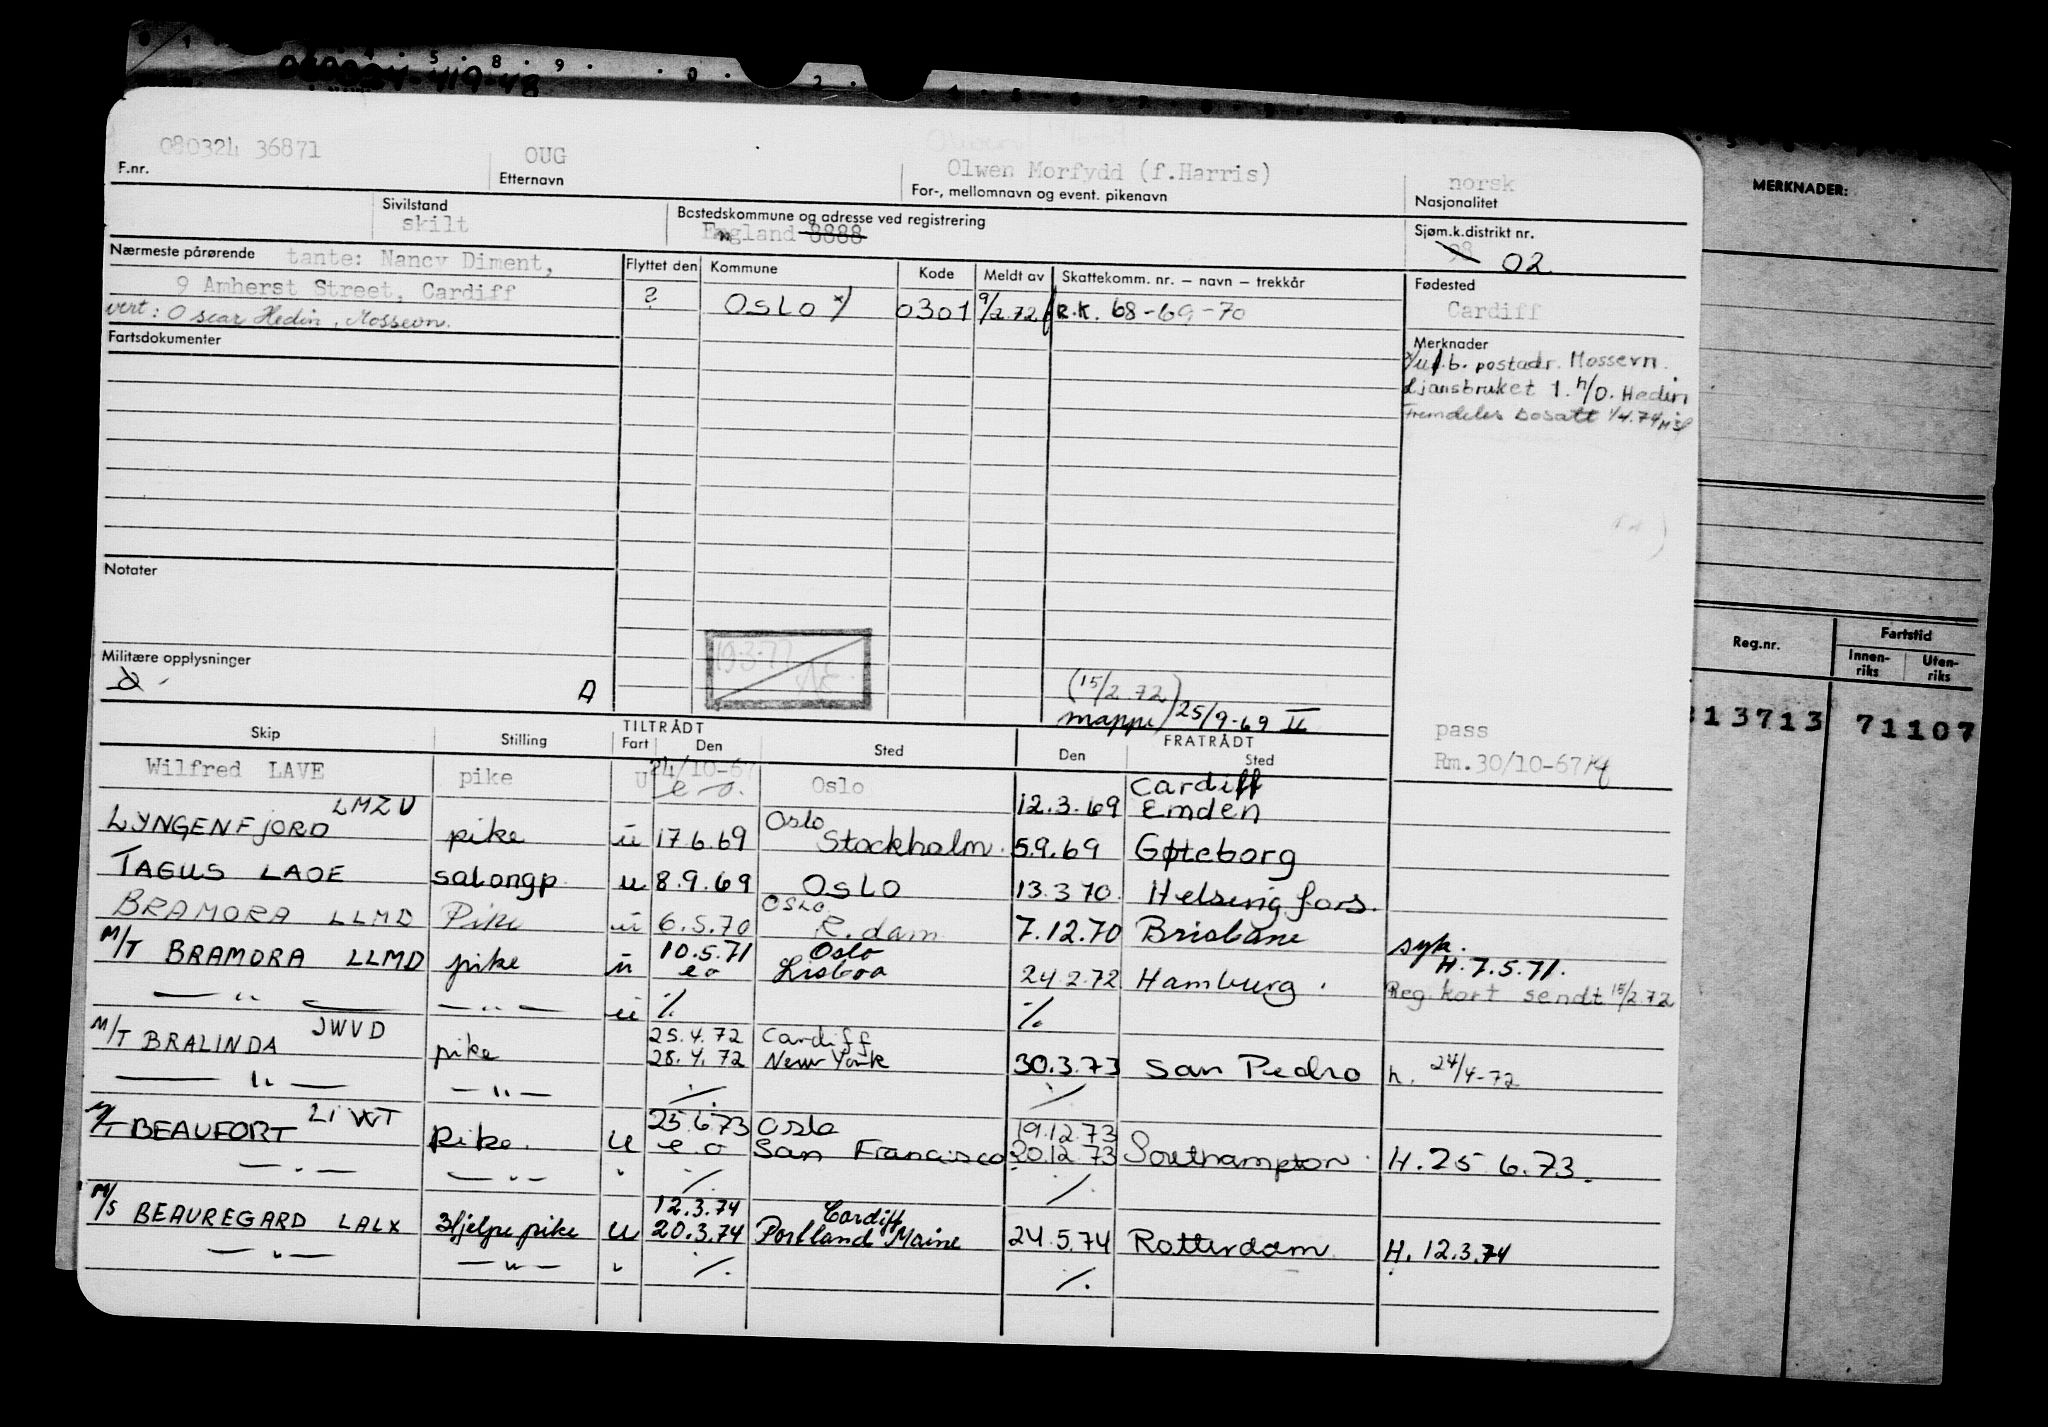 080324 36871
OUG
Olwen Morfydd (f.Harris)
norsk
F.nr.
Etternavn
For-, mellomnavn og event. pikenavn
Nasjonalitet
Sivilstand
skilt
Bostedskommune og adresse ved registrering
England 8888
Sjøm.k.distrikt nr.
02
Nærmeste pårørende
tante: Nancy Diment,
9 Amherst Street, Cardiff
vert: Oscar Hedin, Mossevn.
Flyttet den
Kommune
Kode
Meldt av
Skattekomm. nr. – navn – trekkår
Fødested
Cardiff
?
OSLO x)
0301
9/2.72
R.K. 68-69-70
Fartsdokumenter
Merknader
b. postadr. Mossevn.
Ljansbruket 1. h/O. Hedin
Fremdeles bosatt 1/4.74
Notater
Militære opplysninger
A
19.3.77
(15/2.72)
mappe 25/9-69 II
pass
Rm.30/10-67
Skip
Stilling
TILTRÅDT
Fart
Den
Sted
FRATRÅDT
Den
Sted
Wilfred LAVE
pike
U
24/10-67
e o.
Oslo
12.3.69
Cardiff
Emden
LYNGENFJORD LMZU
pike
u
17.6.69
Oslo
Stockholm.
5.9.69
Gøteborg
TAGUS LAOE
salongp.
u
8.9.69
OSLO
13.3.70.
Helsingfors.
BRAMORA LLMD
Pike
u
6.5.70
Oslo
R.dam
7.12.70
Brisbane
syk.
M/T BRAMORA LLMD
pike
u
10.5.71
e o
Oslo
Lisboa
24.2.72
Hamburg.
H.7.5.71.
Reg.kort sendt 15/2.72
— " —
— " —
u
%
%
M/T BRALINDA JWVD
pike
25.4.72
28.4.72
Cardiff
New York
30.3.73
San Pedro
h. 24/4-72
— " —
— " —
%
%
M/T BEAUFORT LIVT
Pike.
U
25.6.73
e o
Oslo
San Francisco
19.12.73
20.12.73
Southampton.
H.25.6.73.
— " —
— " —
"
%
%
M/S BEAUREGARD LALX
3hjelpepike
U
12.3.74
20.3.74
Cardiff
Portland Maine
24.5.74
Rotterdam
H. 12.3.74
— " —
— " —
"
%
%
MERKNADER:
Reg.nr.
Fartstid
Innen-
riks
Uten-
riks
13713
71107